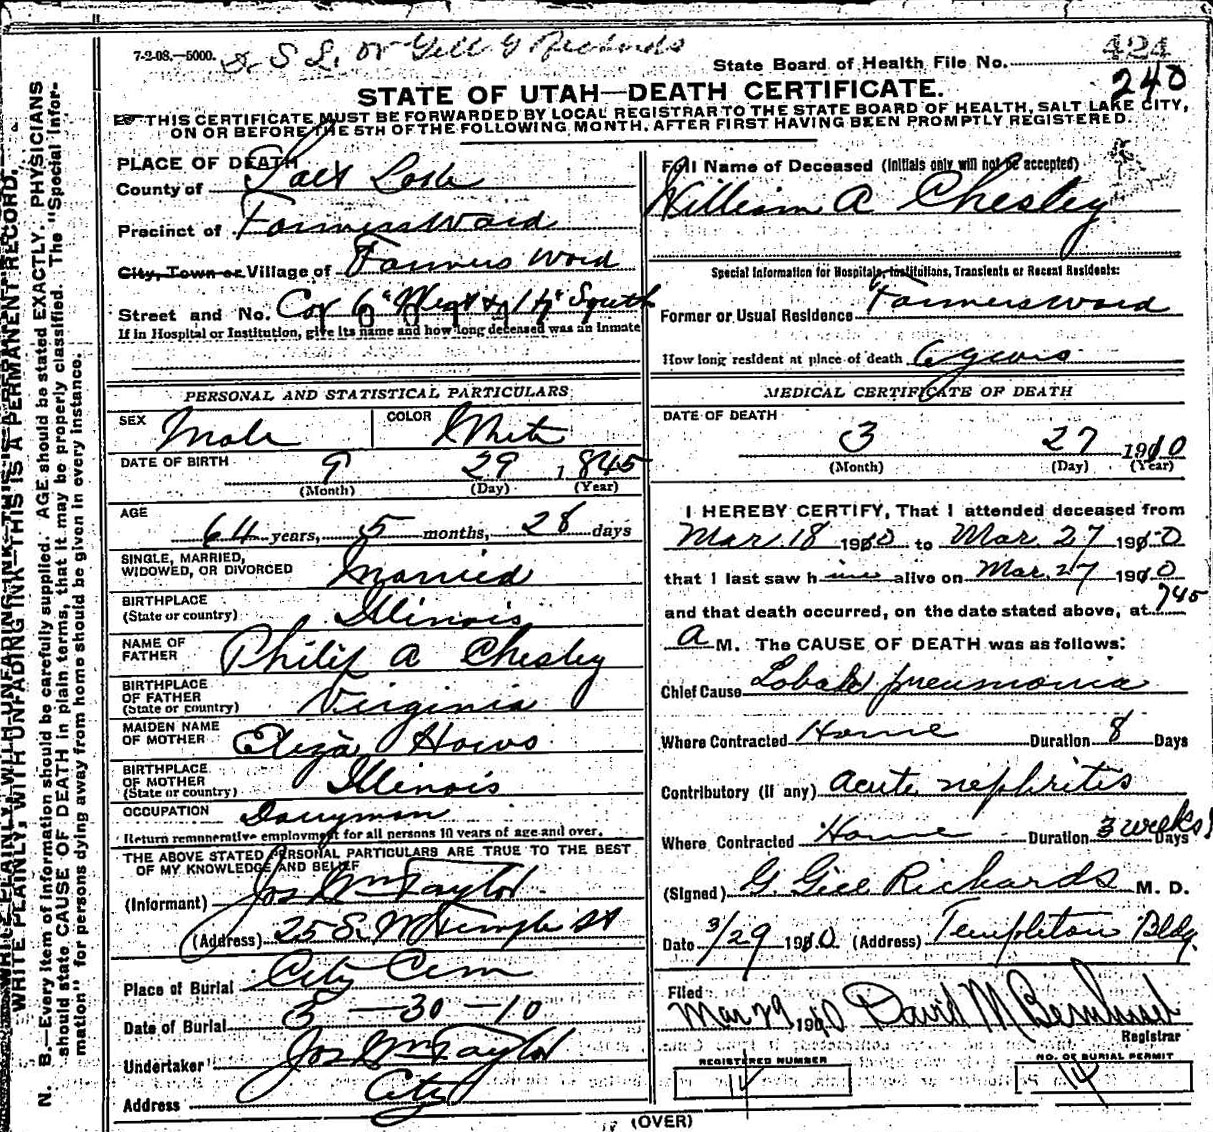 7-2-08.—5000. Dr Gill G Richards
State Board of Health File No. 424
240
STATE OF UTAH—DEATH CERTIFICATE.
THIS CERTIFICATE MUST BE FORWARDED BY LOCAL REGISTRAR TO THE STATE BOARD OF HEALTH, SALT LAKE CITY,
ON OR BEFORE THE 5TH OF THE FOLLOWING MONTH, AFTER FIRST HAVING BEEN PROMPTLY REGISTERED.
WRITE PLAINLY, WITH UNFADING INK—THIS IS A PERMANENT RECORD.
N. B.—Every item of information should be carefully supplied. AGE should be stated EXACTLY. PHYSICIANS
should state CAUSE OF DEATH in plain terms, that it may be properly classified. The "Special Infor-
mation" for persons dying away from home should be given in every instance.
PLACE OF DEATH
County of Salt Lake
Precinct of Farmers Ward
City, Town or Village of Farmers Ward
Street and No. Cor 6" West & 17" South
If in Hospital or Institution, give its name and how long deceased was an inmate
PERSONAL AND STATISTICAL PARTICULARS
SEX Male COLOR White
DATE OF BIRTH 9 29 1845
(Month) (Day) (Year)
AGE
64 years, 5 months, 28 days
SINGLE, MARRIED,
WIDOWED, OR DIVORCED Married
BIRTHPLACE
(State or country) Illinois
NAME OF
FATHER Philip A Chesley
BIRTHPLACE
OF FATHER
(State or country) Virginia
MAIDEN NAME
OF MOTHER Eliza Haws
BIRTHPLACE
OF MOTHER
(State or country) Illinois
OCCUPATION Dairyman
Return remunerative employment for all persons 10 years of age and over.
THE ABOVE STATED PERSONAL PARTICULARS ARE TRUE TO THE BEST
OF MY KNOWLEDGE AND BELIEF
(Informant) Jos Wm Taylor
(Address) 25 S. W Temple St
Place of Burial City Cem
Date of Burial 3-30-10
Undertaker Jos Wm Taylor
Address City
Full Name of Deceased (Initials only will not be accepted)
William A Chesley
Special Information for Hospitals, Institutions, Transients or Recent Residents:
Former or Usual Residence Farmers Ward
How long resident at place of death 6 years
MEDICAL CERTIFICATE OF DEATH
DATE OF DEATH
3 27 1910
(Month) (Day) (Year)
I HEREBY CERTIFY, That I attended deceased from
Mar. 18 1910 to Mar. 27 1910
that I last saw him alive on Mar. 27 1910
and that death occurred, on the date stated above, at 745
A M. The CAUSE OF DEATH was as follows:
Chief Cause Lobar pneumonia
Where Contracted Home Duration 8 Days
Contributory (if any) acute nephritis
Where Contracted Home Duration 3 weeks Days
(Signed) G. Gill Richards M. D.
Date 3/29 1910 (Address) Templeton Bldg.
Filed
Mar 29 1910 David M Bernhisel
Registrar
REGISTERED NUMBER
14
NO. OF BURIAL PERMIT
14
(OVER)